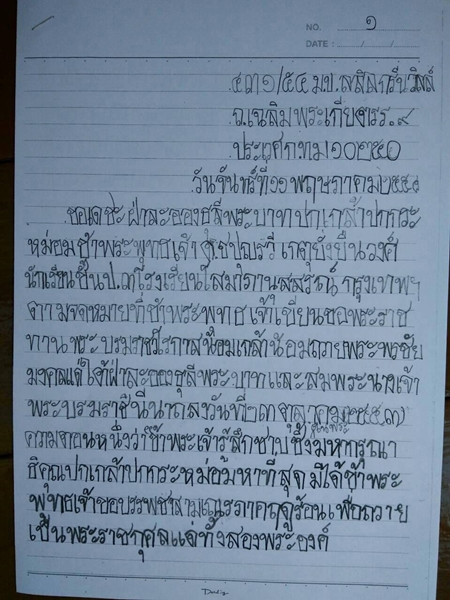 NO. ๑
DATE : / /
๔๓๑/๕๔ มบ.
ถ.เฉลิมพระเกียรติร.๙
ประเวศ กทม ๑๐๒๕๐
วันจันทร์ที่ พฤษภาคม
ขอเดชะ ฝ่าละอองธุลีพระบาทปกเกล้าปกกระ
หม่อม ข้าพระพุทธเจ้า เกตุยั่งยืนวงศ์
นักเรียนชั้นป.๓โรงเรียน กรุงเทพฯ
ตามจดหมายที่ข้าพระพุทธเจ้าเขียนขอพระราช
ทาน พระบรมราชวโรกาสน้อมเกล้าน้อมถวายพระพรชัย
มงคลแด่ใต้ฝ่าละอองธุลีพระบาทและสมพระนางเจ้า
พระบรมราชินีนาถลงวันที่๒๓ตุลาคม๒๕๕๗
ความตอนหนึ่งว่าข้าพระเจ้ารู้สึกซาบซึ้งมหากรุณา
ธิคุณปกเกล้าปกกระหม่อมหาที่สุดมิได้ข้าพระ
พุทธเจ้าขอบรรพชาสามเณรภาคฤดูร้อนเพื่อถวาย
เป็นพระราชกุศลแด่ทั้งสองพระองค์